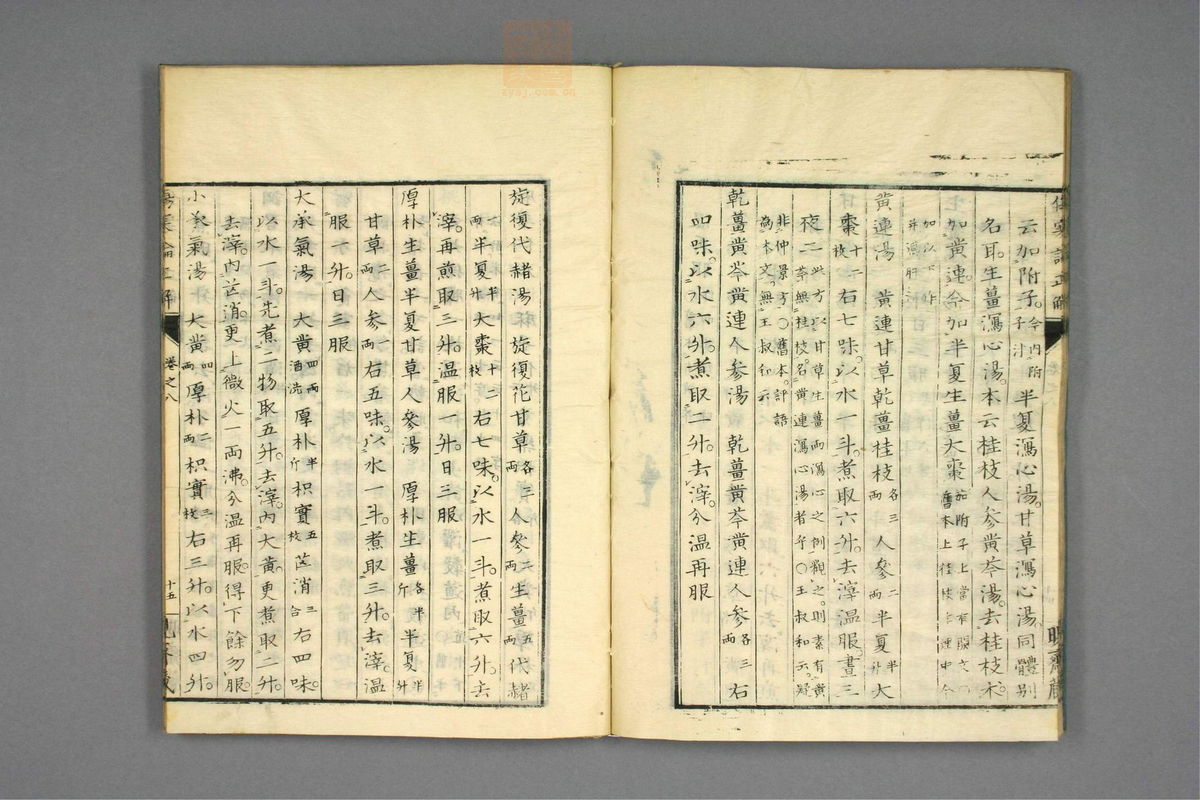 云加附子。半夏瀉心湯。甘草瀉心湯。同體別
名耳。生薑瀉心湯。本云桂枝人參黃芩湯。去桂枝朮。
加黃連。
黃連湯 黃連甘草乾薑桂枝各三兩人參二兩半夏半升大
棗十二枚右七味。以水一斗。煮取六升。去滓溫服。晝三
夜二此方以甘草生薑兩瀉心之例觀之。則素有黃
芩無桂枝。名黃連瀉心湯者乎〇王叔和云。疑
非仲景方〇舊本評語
為本文。無王叔和云
乾薑黃芩黃連人參湯 乾薑黃芩黃連人參各三兩右
四味。以水六升。煮取二升。去滓。分溫再服
旋復代赭湯 旋復花甘草各三兩人參二兩生薑五兩代赭
一兩半夏半升大棗十二枚右七味。以水一斗。煮取六升。去
滓。再煎取三升。溫服一升。日三服
厚朴生薑半夏甘草人參湯 厚朴生薑各半斤半夏半升
甘草二兩人參一兩右五味。以水一斗。煮取三升。去滓。溫
服一升。日三服
大承氣湯 大黃四兩酒洗厚朴半斤枳實五枚芒消三合右四味。
以水一斗。先煮二物取五升。去滓。內大黃。更煮取二升。
去滓。內芒消。更上微火一兩沸。分溫再服。得下餘勿服。
小承氣湯 大黃四兩厚朴二兩枳實三枚右三升。以水四升。
卷之八
十五